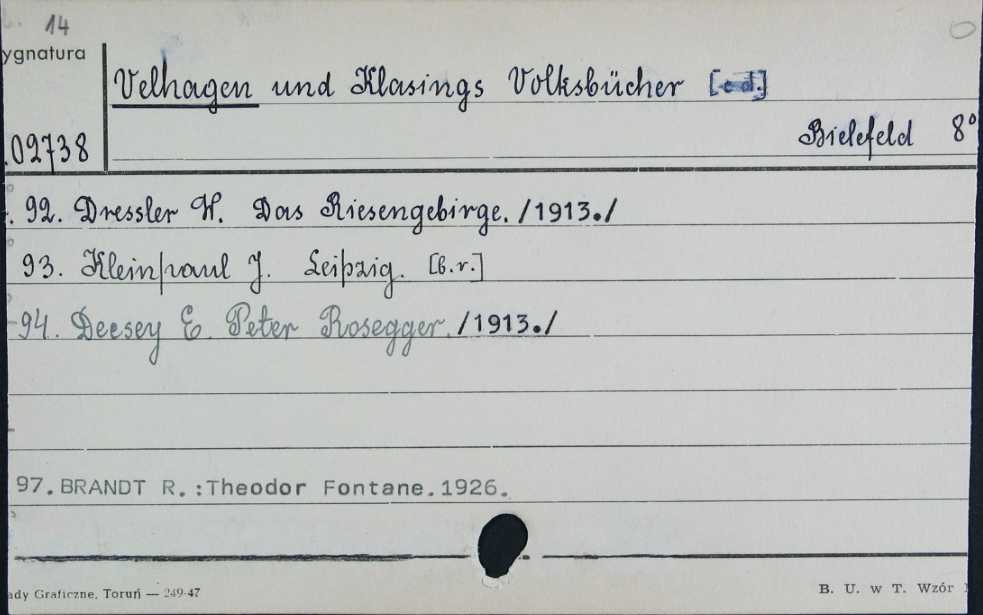 14
ygnatura
Velhagen und Klasings Volksbücher [c d.]
Bielefeld 8°
.02738
92. Dressler W. Das Riesengebirge. /1913./
93. Kleinpaul J. Leipzig. [b.r.]
94. Decsey E. Peter Rosegger. /1913./
97. BRANDT R.:Theodor Fontane.1926.
ady Graficzne, Toruń — 249-47
B. U. w T. Wzór